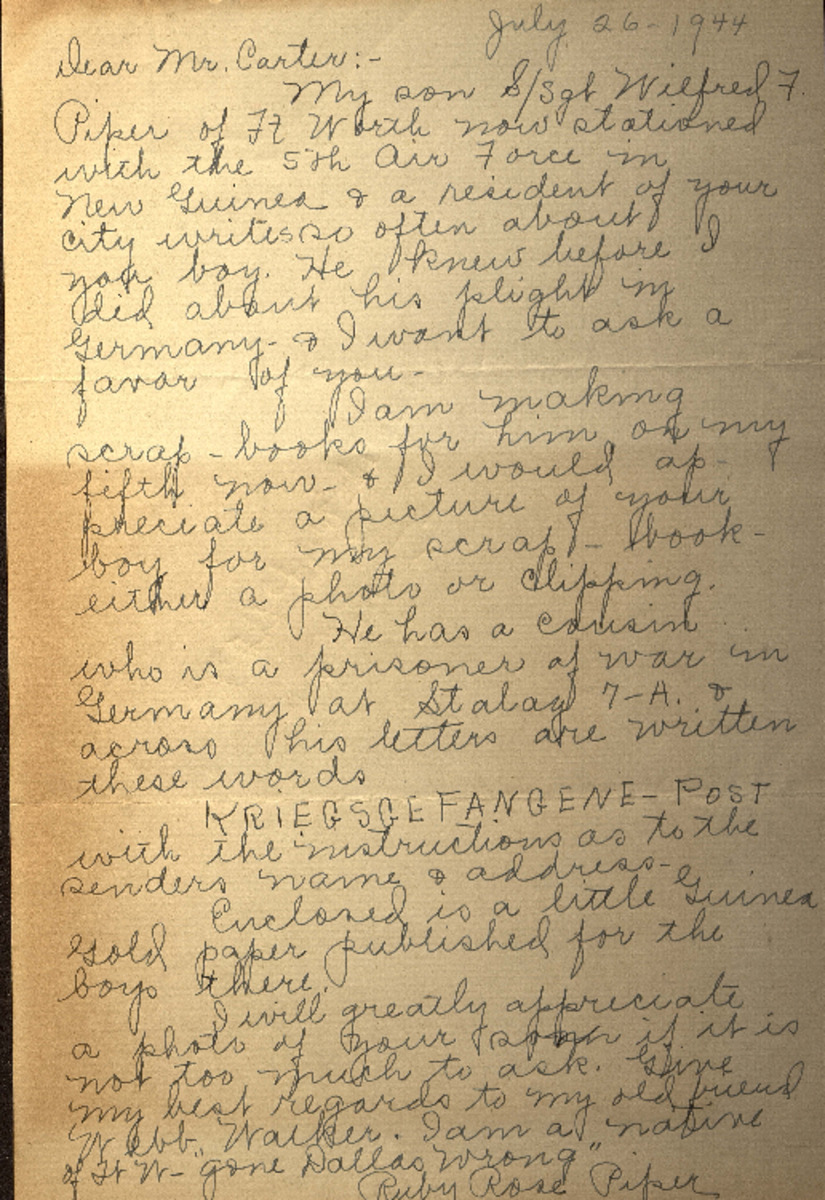 July 26-1944
Dear Mr. Carter:-
My son S/Sgt Wilfred F.
Piper of Ft Worth now stationed
with the 5th Air Force in
New Guinea & a resident of your
city writes so often about
your boy. He knew before I
did about his plight in
Germany- & I want to ask a
favor of you-
I am making
scrap-books for him on my
fifth now- & I would ap-
preciate a picture of your
boy for my scrap-book-
either a photo or clipping.
He has a cousin
who is a prisoner of war in
Germany at Stalag 7-A. &
across his letters are written
these words
KRIEGSGEFANGENE-POST
with the instructions as to the
senders name & address-
Enclosed is a little Guinea
Gold paper published for the
boys there.
I will greatly appreciate
a photo of your son if it is
not too much to ask. Give
my best regards to my old friend
Webb Walker. I am a native
of Ft W- "gone Dallas wrong"
Ruby Rose Piper